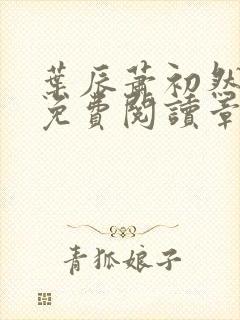 葉辰蕭初然
免費閱讀章
青狐娘子